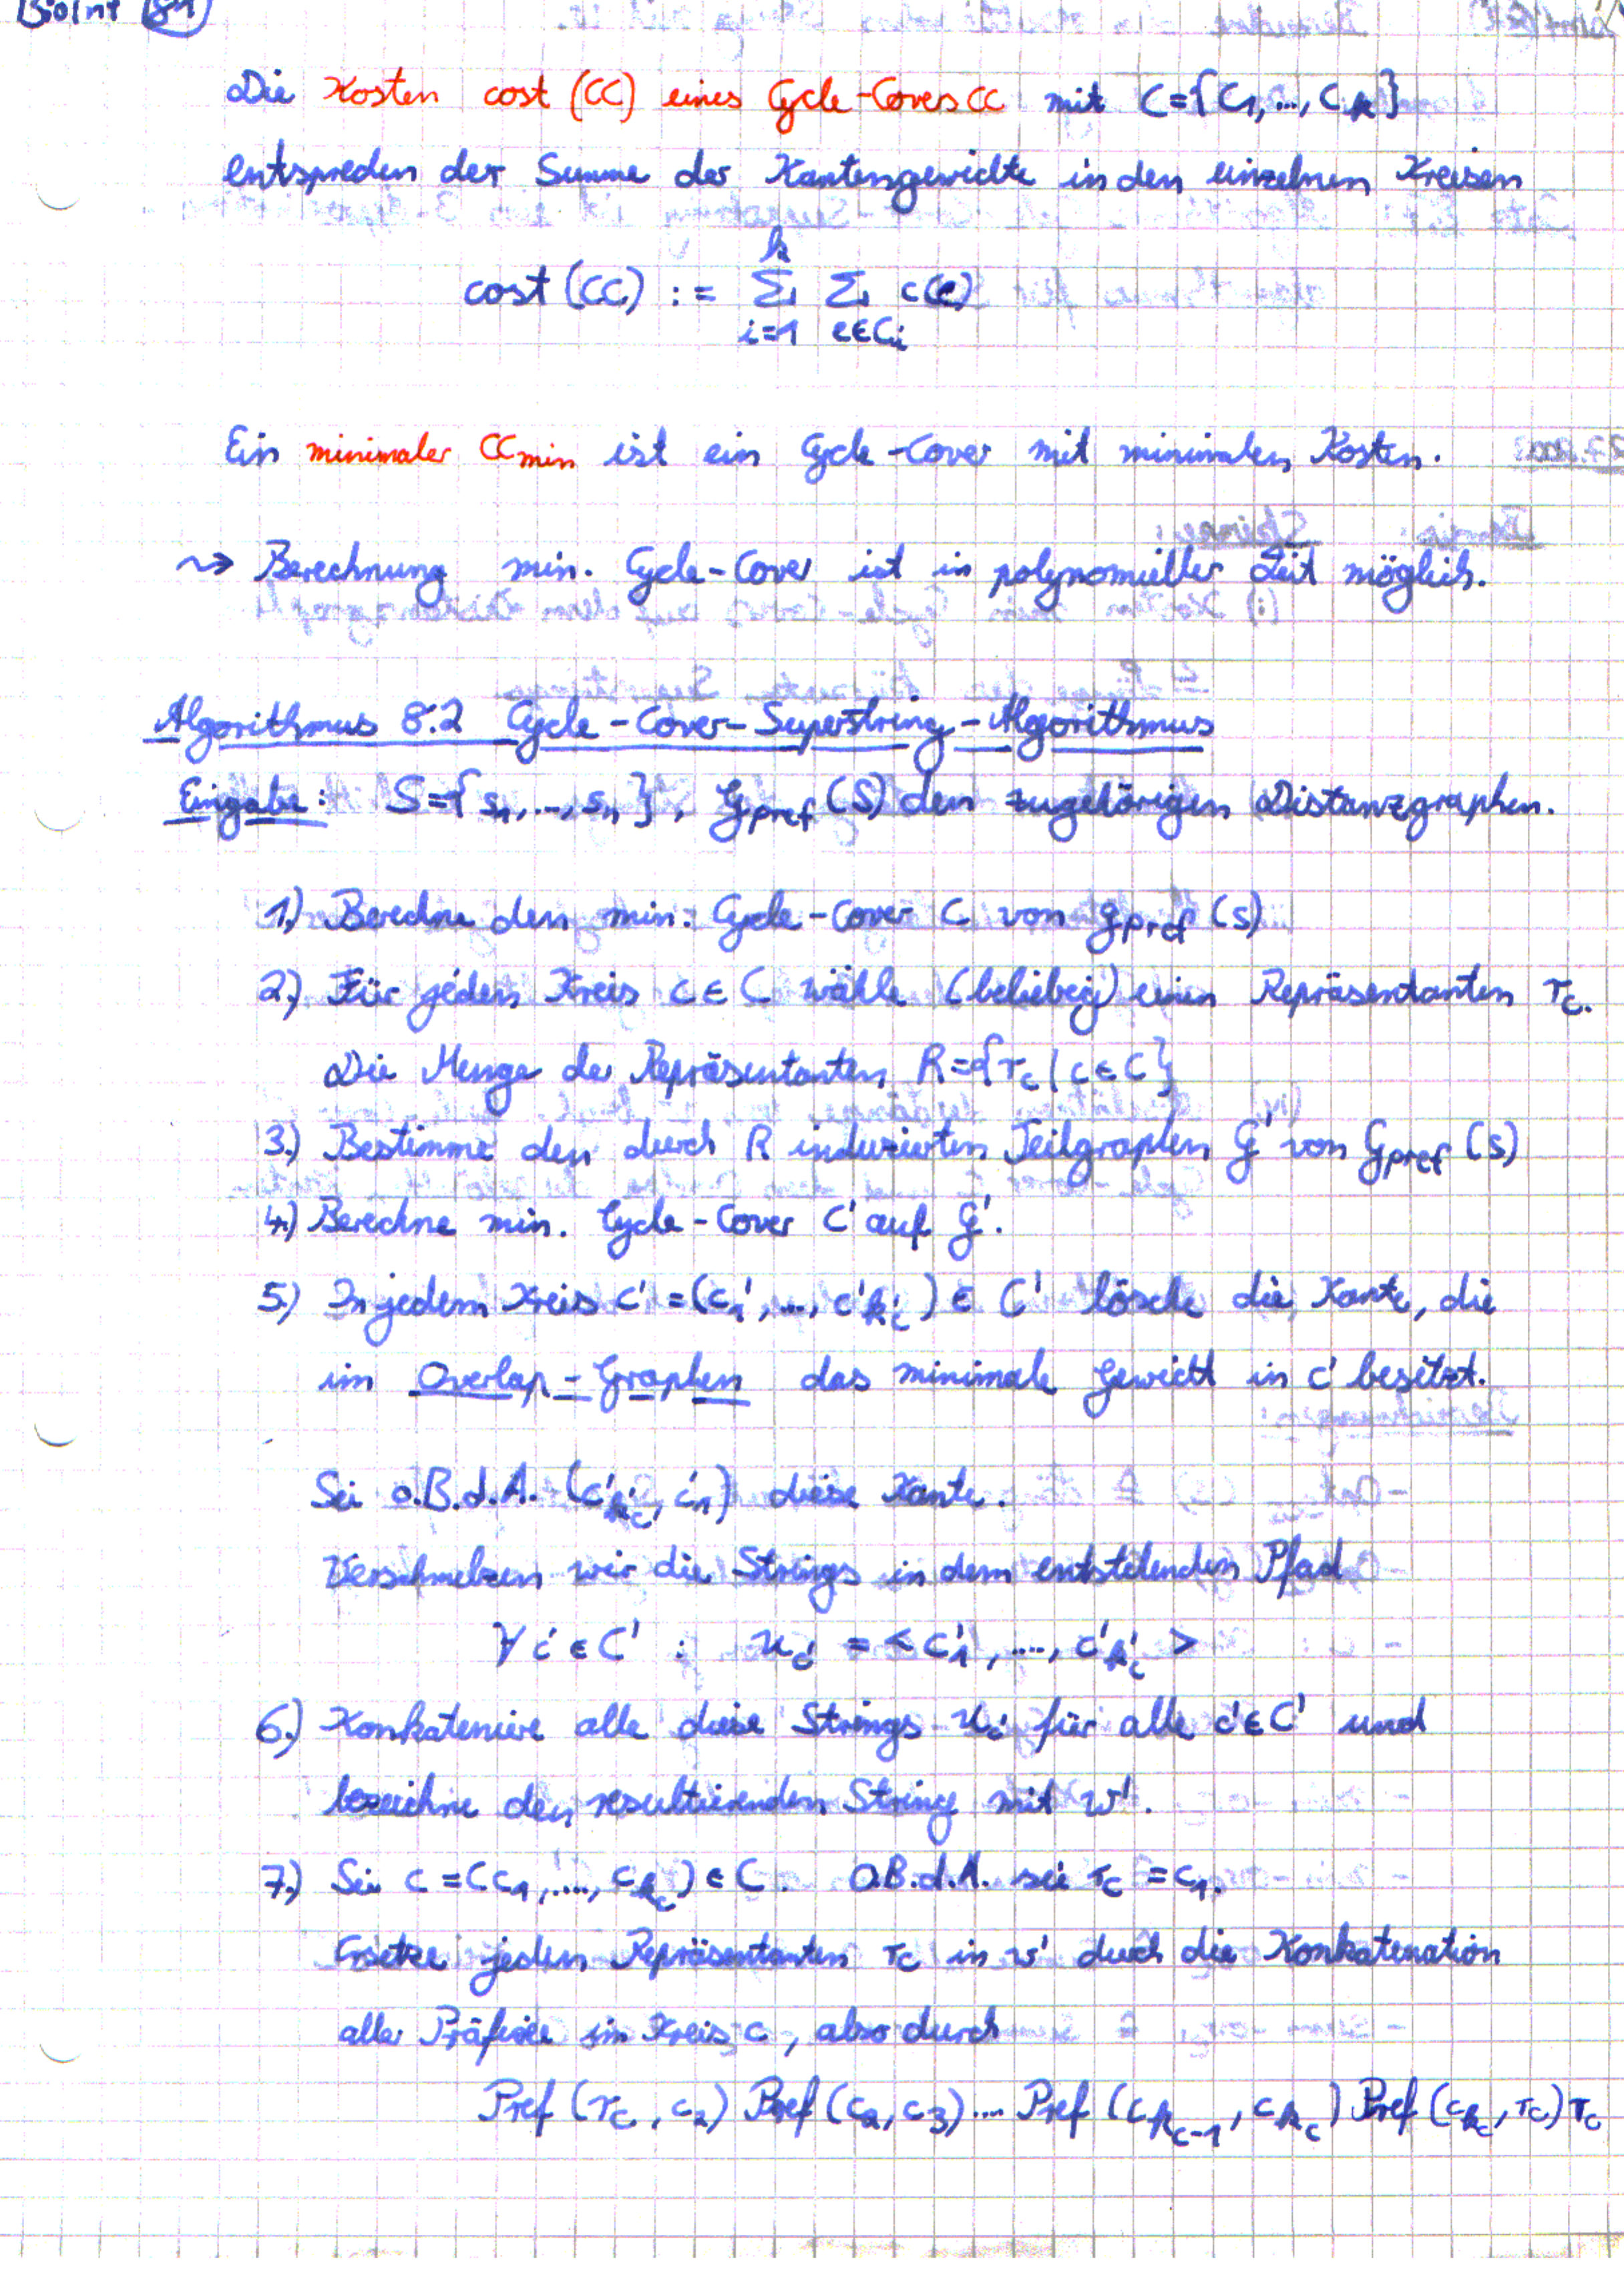 Bioinf 84
Die Kosten cost (CC) eines Cycle-Covers CC mit C={C₁,...,C_k}
entspreden der Summe der Kantengewichte in den einzelnen Kreisen
cost (CC) := ∑_{i=1}^{k} ∑_{e∈C_i} c(e)
Ein minimaler CC_min ist ein Cycle-Cover mit minimalen Kosten.
⇝ Berechnung min. Cycle-Cover ist in polynomieller Zeit möglich.
Algorithmus 8.2 Cycle-Cover-Superstring-Algorithmus
Eingabe: S={s₁,...,s_n}, G_pref(S) den zugehörigen Distanzgraphen.
1.) Berechne den min. Cycle-Cover C von G_pref(S)
2.) Für jeden Kreis c∈C wähle (beliebig) einen Repräsentanten r_c.
Die Menge der Repräsentanten R={r_c | c∈C}
3.) Bestimme den durch R induzierten Teilgraphen G' von G_pref(S)
4.) Berechne min. Cycle-Cover C' auf G'.
5.) In jedem Kreis c'=(c₁',...,c'_{k'_c})∈C' lösche die Kante, die
im Overlap-Graphen das minimale Gewicht in c' besitzt.
Sei o.B.d.A. (c'_{k'_c}, c'₁) diese Kante.
Verschmelzen wir die Strings in dem entstehenden Pfad
∀c'∈C' : u_{c'} = <c'₁,...,c'_{k'_c}>
6.) Konkateniere alle diese Strings u_{c'} für alle c'∈C' und
bezeichne den resultierenden String mit w'.
7.) Sei c=(c₁,...,c_{k_c})∈C. O.B.d.A. sei r_c=c₁.
Ersetze jeden Repräsentanten r_c in w' durch die Konkatenation
aller Präfixe im Kreis c, also durch
Pref(r_c,c₂) Pref(c₂,c₃)... Pref(c_{k_c-1},c_{k_c}) Pref(c_{k_c},r_c) r_c